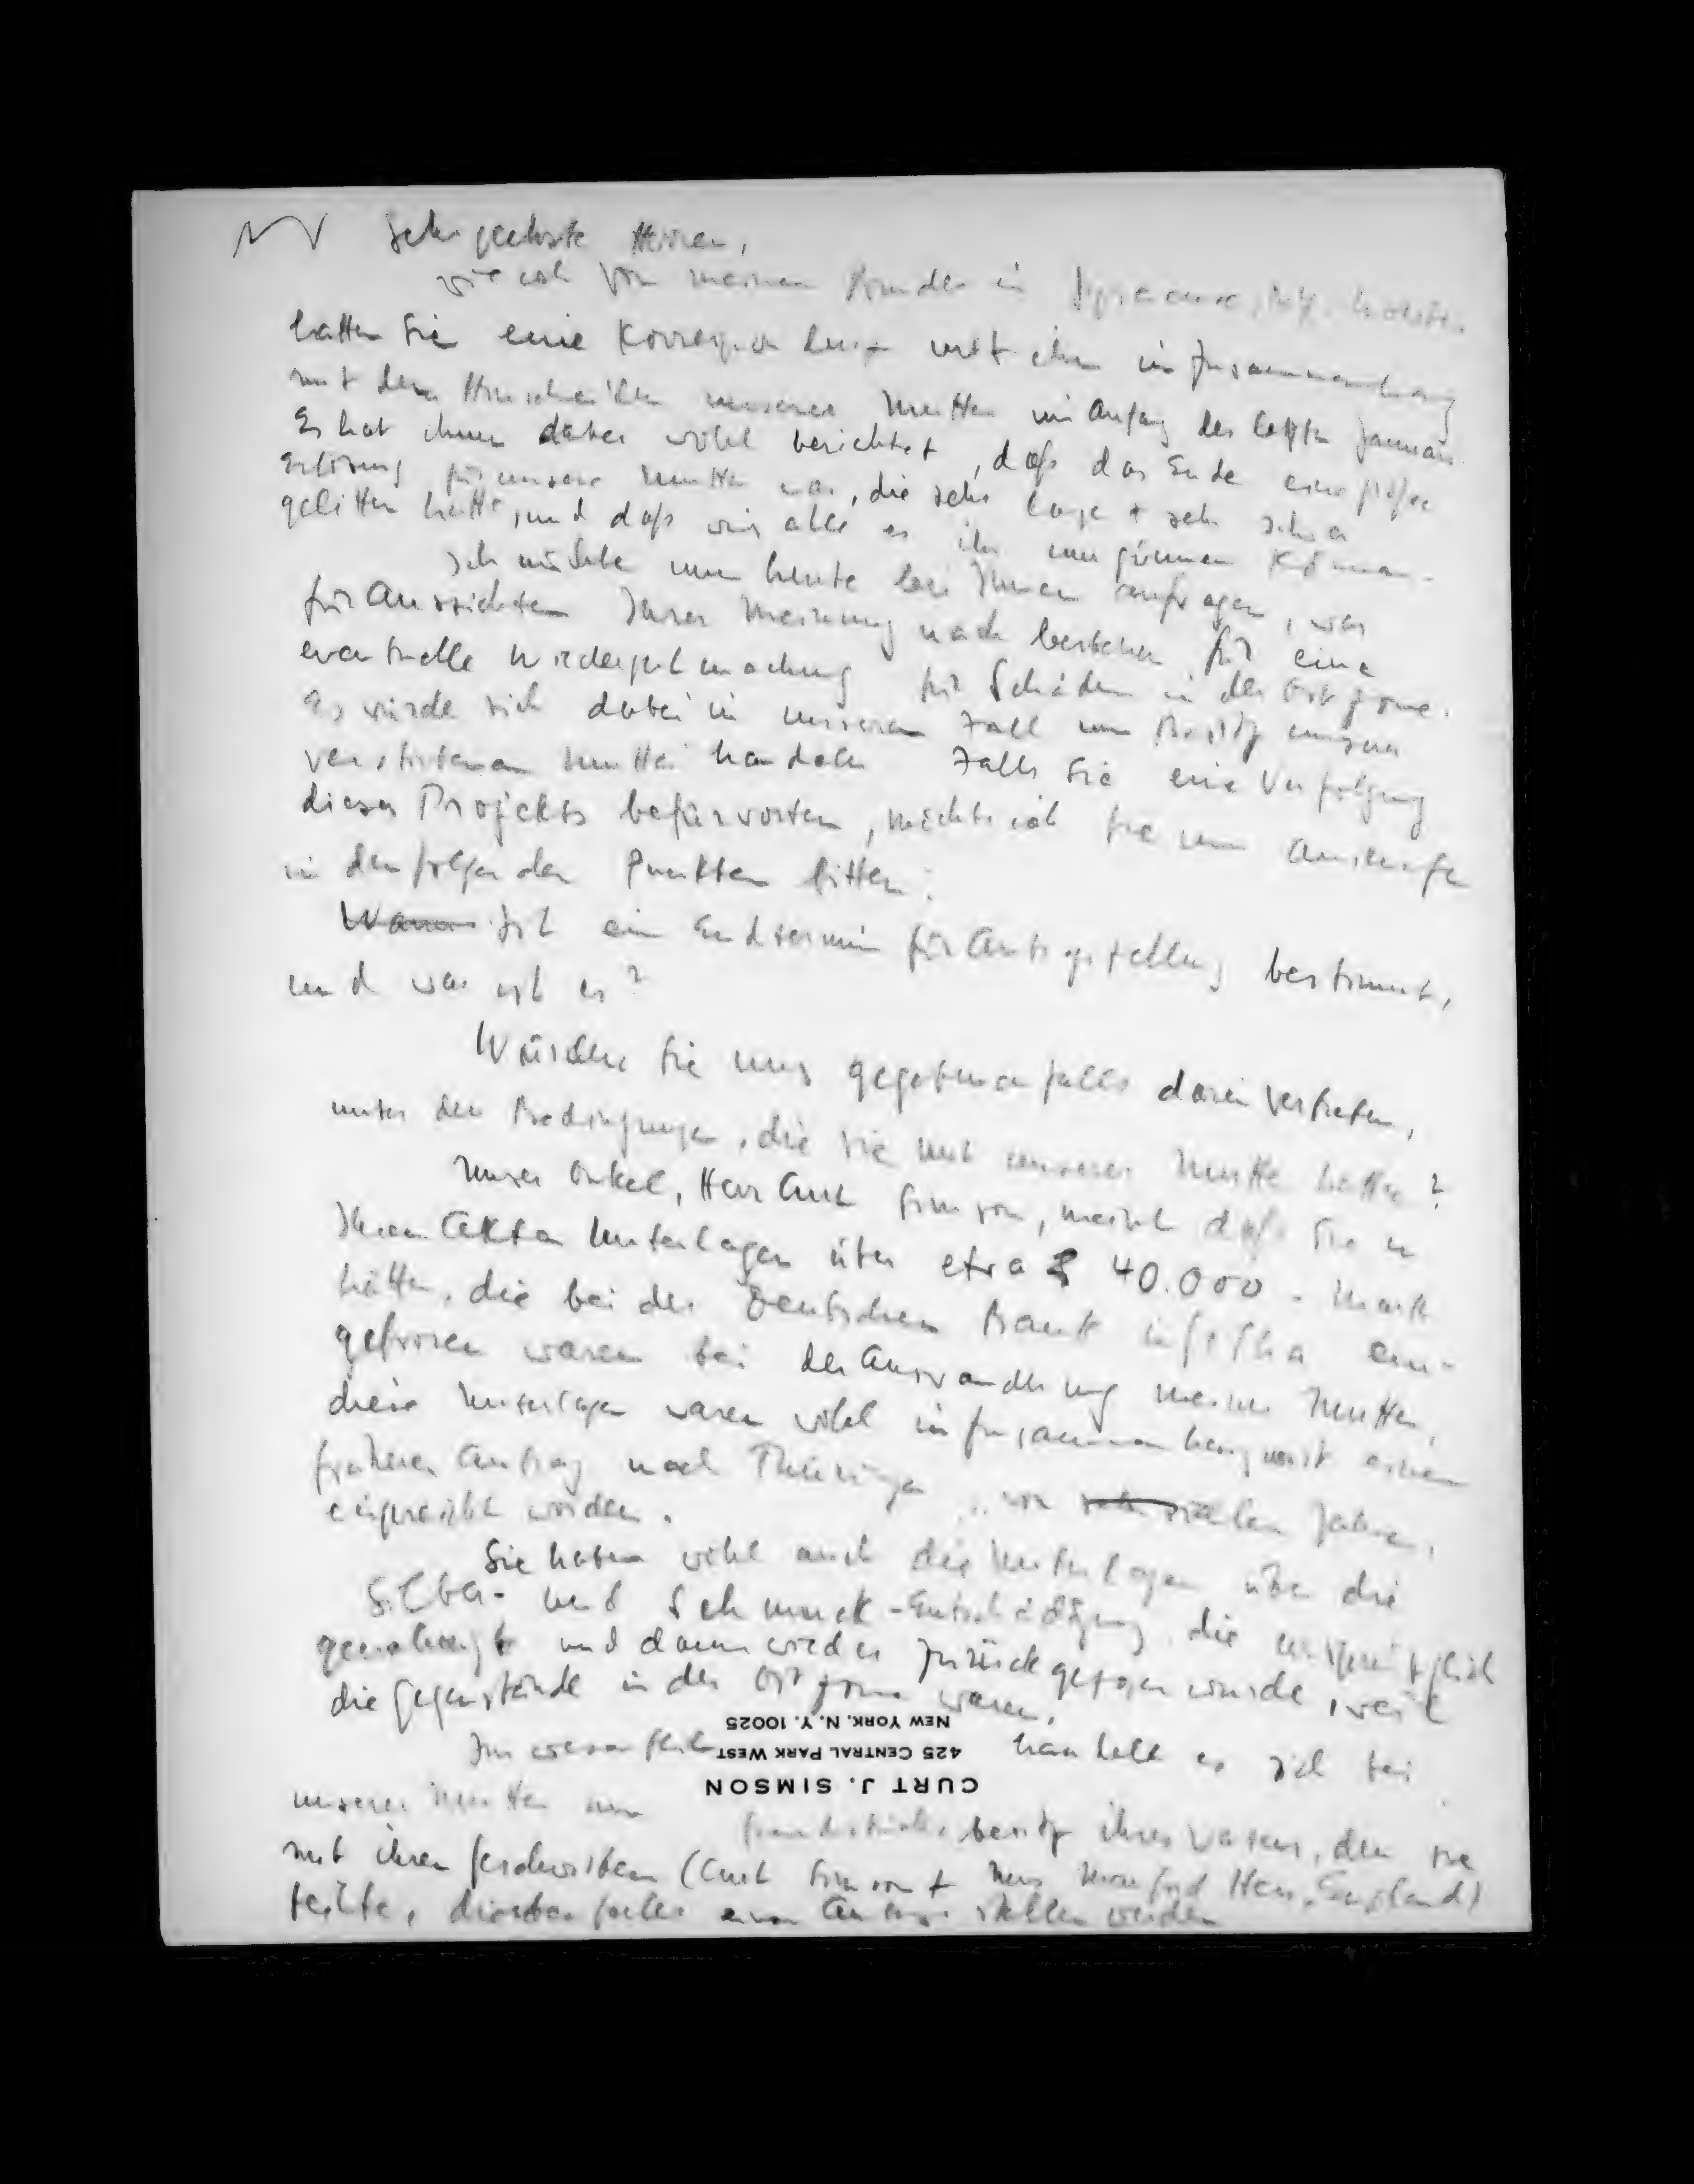 Sehr geehrte Herren,
wie ich von meinem Bruder in Syracuse, N.Y. hörte,
hatten Sie eine Korrespondenz mit ihm im Zusammenhang
mit dem Hinscheiden unserer Mutter im Anfang des letzten Januars
Er hat ihnen dabei wohl berichtet, daß das Ende eine große
Erlösung für unsere Mutter war, die sehr lange + sehr schwer
gelitten hatte, und daß wir alle es ihr nur gönnen können.
Ich möchte nun heute bei Ihnen anfragen, was
für Aussichten Ihrer Meinung nach bestehen für eine
eventuelle Wiedergutmachung für Schäden in der Ostzone.
Es würde sich dabei in unserem Fall um Besitz unserer
verstorbenen Mutter handeln Falls Sie eine Verfolgung
dieses Projekts befürworten, möchte ich Sie um
in den folgenden Punkten bitten:
Wann Ist ein Endtermin für Antragstellung bestimmt,
und was ist er?
Würden Sie uns gegebenenfalls darin vertreten,
unter den Bedingungen, die Sie mit unserer Mutter hatten?
Unser Onkel, Herr Curt Simson, meint daß Sie in
Ihren Akten Unterlagen über etwa 40.000.- Mark
hätten, die bei der Deutschen Bank in Gotha ein-
gefroren waren bei der Auswanderung meiner Mutter,
diese Unterlagen waren wohl im Zusammenhang mit einem
früheren Antrag nach Thüringen vor vielen Jahren,
eingereicht worden.
Sie haben wohl auch die Unterlagen über die
Silber- und Schmuck-Entschädigung, die ursprünglich
genehmigt und dann wieder zurückgezogen wurde, weil
die Gegenstände in der Ostzone waren.
Im wesentlichen handelt es sich bei
unserer Mutter um Grundstücksbesitz ihres Vaters, den sie
mit ihren Geschwistern (Curt Simson + Mrs Hess, England)
teilte, die ebenfalls einen Antrag stellen werden
CURT J. SIMSON
425 CENTRAL PARK WEST
NEW YORK, N. Y. 10025